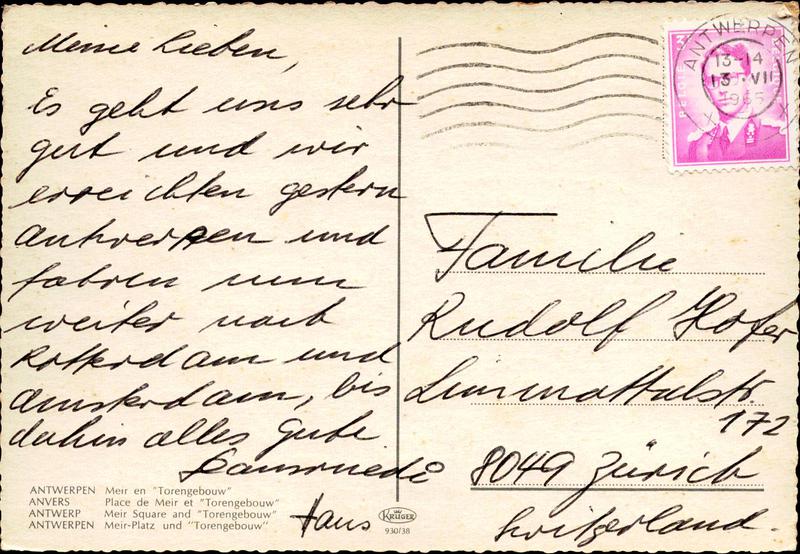 Meine Lieben,
Es geht uns sehr
gut und wir
erreichten gestern
Antwerpen und
fahren nun
weiter nach
Rotterdam und
Amsterdam, bis
dahin alles Gute
Hans
ANTWERPEN Meir en "Torengebouw"
ANVERS Place de Meir et "Torengebouw"
ANTWERP Meir Square and "Torengebouw"
ANTWERPEN Meir-Platz und "Torengebouw"
KRÜGER
930/38
ANTWERPEN
13-14
13 · VII
1965
BELGIE
3
BELGIQUE
Familie
Rudolf Hofer
Limmattalstr.
172
8049 Zürich
Switzerland.